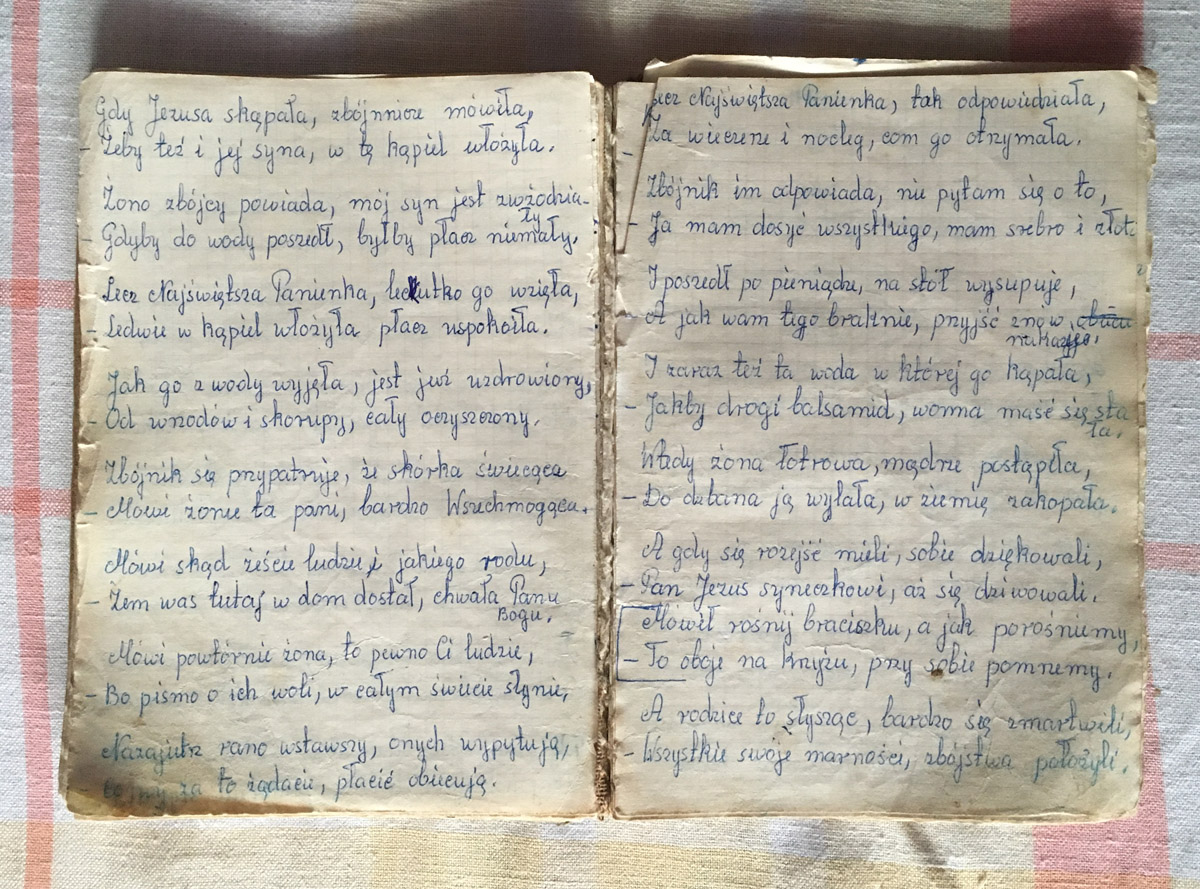 Gdy Jezusa skąpała, zbójnnicze mówiła,
- Żeby też i jej syna, w tą kąpiel włożyła.
Żono zbójcy powiada, mój syn jest zwżodzia-
ły
- Gdyby do wody poszedł, byłby płacz niemały.
Lecz Najświętsza Panienka, leciutko go wzięła,
- Ledwie w kąpiel włożyła płacz uspokoiła.
Jak go z wody wyjęła, jest już uzdrowiony,
- Od wrzodów i skorupy, cały oczyszczony.
Zbójnik się przypatruje, że skórka świecąca
- Mówi żonie ta pani, bardzo Wszechmogąca.
Mówi skąd żeście ludzie, i jakiego rodu,
- Żem was tutaj w dom dostał, chwała Panu
Bogu.
Mówi powtórnie żona, to pewno Ci ludzie,
- Bo pismo o ich woli, w całym świecie słynie,
Nazajutrz rano wstawszy, onych wypytują,
- za to żądacie, płacić obiecują.
Lecz Najświętsza Panienka, tak odpowiedziała,
- Za wieczerze i nocleg, com go otrzymała.
Zbójnik im odpowiada, nie pytam się o to,
- Ja mam dosyć wszystkiego, mam srebro i złoto
I poszedł po pieniądze, na stół wysupuje,
- A jak wam tego braknie, przyjść znów
nakazuje.
I zaraz też ta woda w której go kąpała,
- Jakby drogi balsamid, wonna maść się sta
ła.
Wtedy żona łotrowa, mądrze postąpiła,
- Do dzbana ją wylała, w ziemię zakopała.
A gdy się rozejść mieli, sobie dziękowali,
- Pan Jezus syneczkowi, aż się dziwowali.
Mówił rośnij braciszku, a jak porośniemy,
- To oboje na krzyżu, przy sobie pomrzemy.
A rodzice to słysząc, bardzo się zmartwili,
- Wszystkie swoje marności, zbójstwa położyli.